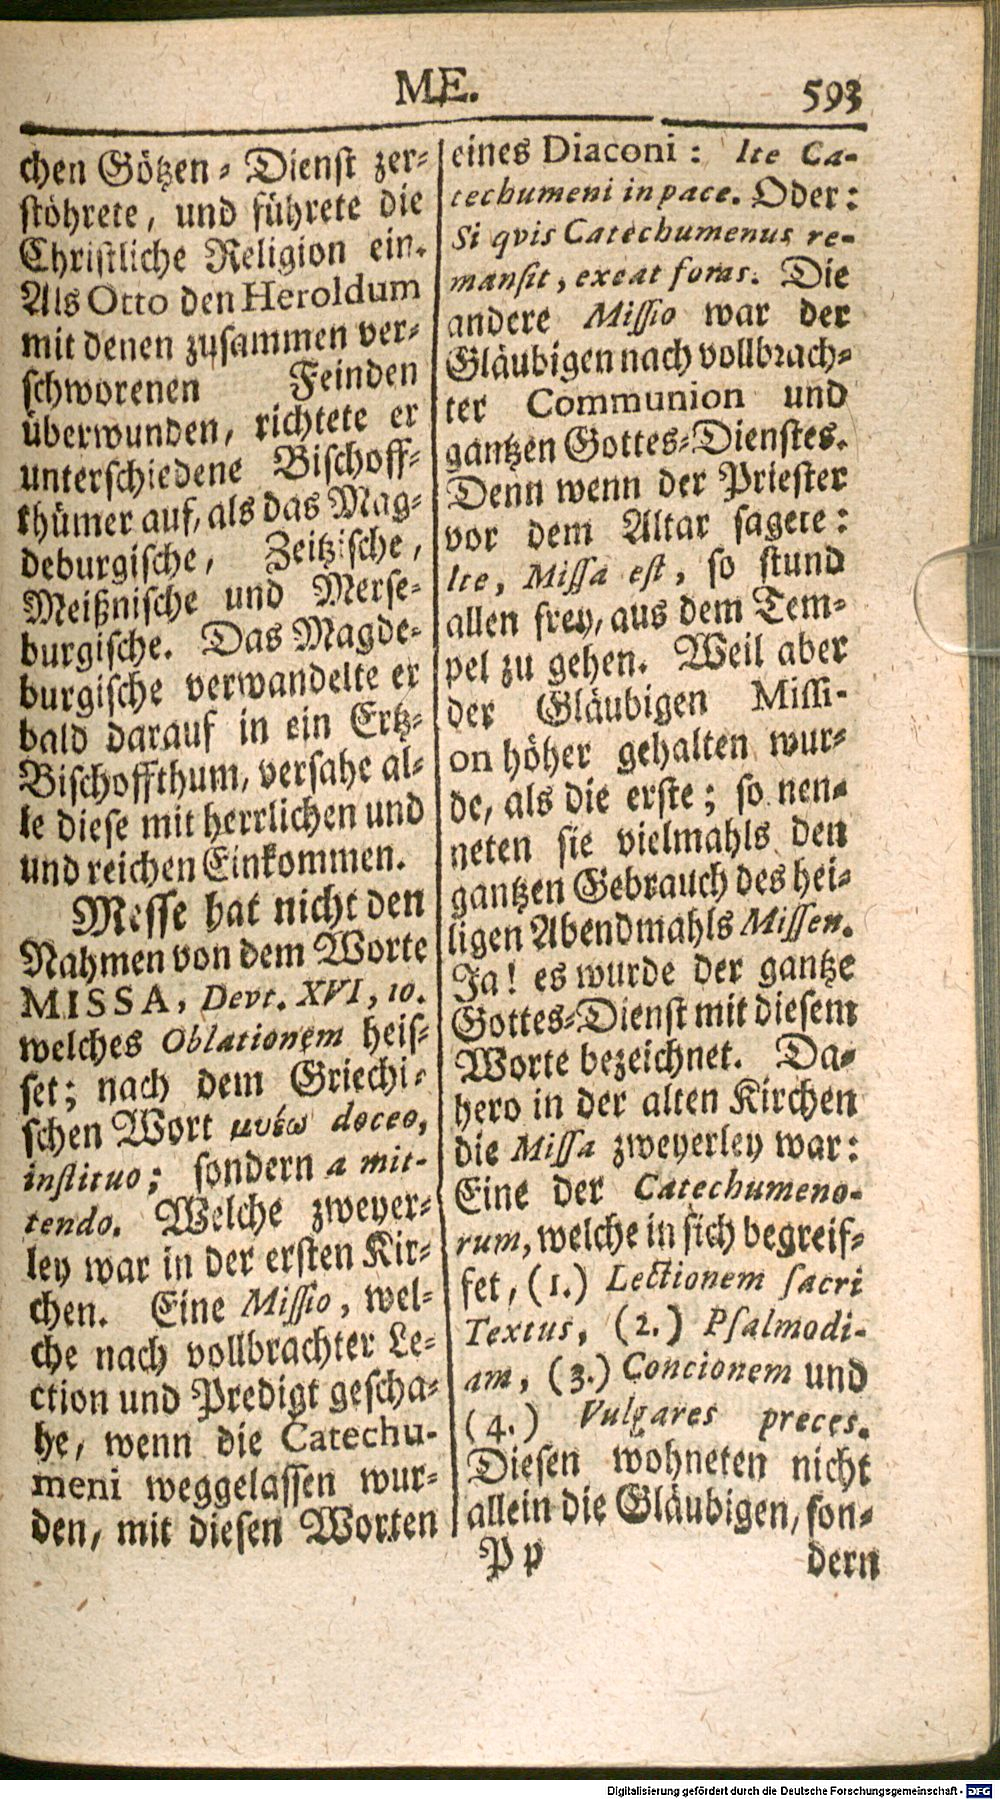 ME.
593
chen Götzen-Dienst zer-
stöhrete, und führete die
Christliche Religion ein.
Als Otto den Heroldum
mit denen zusammen ver-
schworenen Feinden
überwunden, richtete er
unterschiedene Bischoff-
thümer auf, als das Mag-
deburgische, Zeitzische,
Meißnische und Merse-
burgische. Das Magde-
burgische verwandelte er
bald darauf in ein Ertz-
Bischoffthum, versahe al-
le diese mit herrlichen und
und reichen Einkommen.
Messe hat nicht den
Nahmen von dem Worte
MISSA, Devt. XVI, 10.
welches Oblationem heis-
set; nach dem Griechi-
schen Wort μυέω doceo,
instituo; sondern a mit-
tendo. Welche zweyer-
ley war in der ersten Kir-
chen. Eine Missio, wel-
che nach vollbrachter Le-
ction und Predigt gescha-
he, wenn die Catechu-
meni weggelassen wur-
den, mit diesen Worten
eines Diaconi: Ite Ca-
techumeni in pace. Oder:
Si qvis Catechumenus re-
mansit, exeat foras. Die
andere Missio war der
Gläubigen nach vollbrach-
ter Communion und
gantzen Gottes-Dienstes.
Denn wenn der Priester
vor dem Altar sagete:
Ite, Missa est, so stund
allen frey, aus dem Tem-
pel zu gehen. Weil aber
der Gläubigen Missi-
on höher gehalten wur-
de, als die erste; so nen-
neten sie vielmahls den
gantzen Gebrauch des hei-
ligen Abendmahls Missen.
Ja! es wurde der gantze
Gottes-Dienst mit diesem
Worte bezeichnet. Da-
hero in der alten Kirchen
die Missa zweyerley war:
Eine der Catechumeno-
rum, welche in sich begreif-
fet, (1.) Lectionem sacri
Textus, (2.) Psalmodi-
am, (3.) Concionem und
(4.) Vulgares preces.
Diesen wohneten nicht
allein die Gläubigen, son-
Pp dern
Digitalisierung gefördert durch die Deutsche Forschungsgemeinschaft - DFG